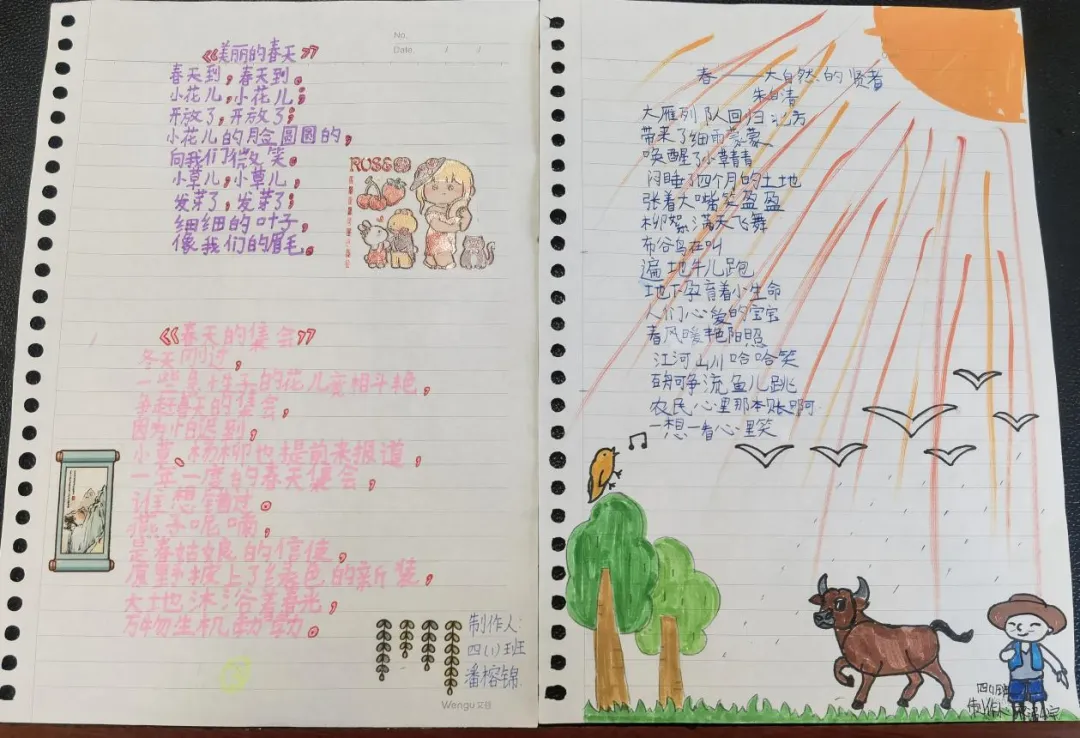 No.
Date. / /
《美丽的春天》
春天到，春天到。
小花儿，小花儿；
开放了，开放了；
小花儿的脸圆圆的，
向我们微笑。
小草儿，小草儿，
发芽了，发芽了；
细细的叶子，
像我们的眉毛。
ROSE
《春天的集会》
冬天刚过，
一些急性子的花儿竞相斗艳，
争赶春天的集会，
因为怕迟到，
小草、杨柳也提前来报道，
一年一度的春天集会，
谁想错过。
燕子呢喃，
是春姑娘的信使，
原野披上了绿色的新装，
大地沐浴着春光，
万物生机勃勃。
制作人：
四(1)班
潘榕锦
Wengu 文谷
春——大自然的贤者
朱自清
大雁列队回归北方
带来了细雨蒙蒙
唤醒了小草青青
闷睡了四个月的土地
张着大嘴笑盈盈
柳絮满天飞舞
布谷鸟在叫
遍地牛儿跑
地下孕育着小生命
人们心爱的宝宝
春风暖艳阳照
江河山川哈哈笑
争流鱼儿跳
农民心里那本账啊
一想一看心里笑
制作人